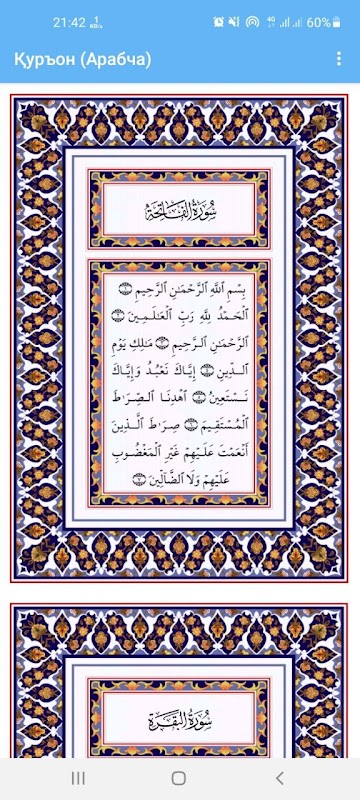 21:42 1 KB/s 4G 60%
Қуръон (Арабча)
سُورَةُ الْفَاتِحَةِ
بِسْمِ ٱللَّهِ ٱلرَّحْمَٰنِ ٱلرَّحِيمِ ۝١
ٱلْحَمْدُ لِلَّهِ رَبِّ ٱلْعَٰلَمِينَ ۝٢
ٱلرَّحْمَٰنِ ٱلرَّحِيمِ ۝٣ مَٰلِكِ يَوْمِ
ٱلدِّينِ ۝٤ إِيَّاكَ نَعْبُدُ وَإِيَّاكَ
نَسْتَعِينُ ۝٥ ٱهْدِنَا ٱلصِّرَٰطَ
ٱلْمُسْتَقِيمَ ۝٦ صِرَٰطَ ٱلَّذِينَ
أَنْعَمْتَ عَلَيْهِمْ غَيْرِ ٱلْمَغْضُوبِ
عَلَيْهِمْ وَلَا ٱلضَّآلِّينَ ۝٧
سُورَةُ الْبَقَرَةِ